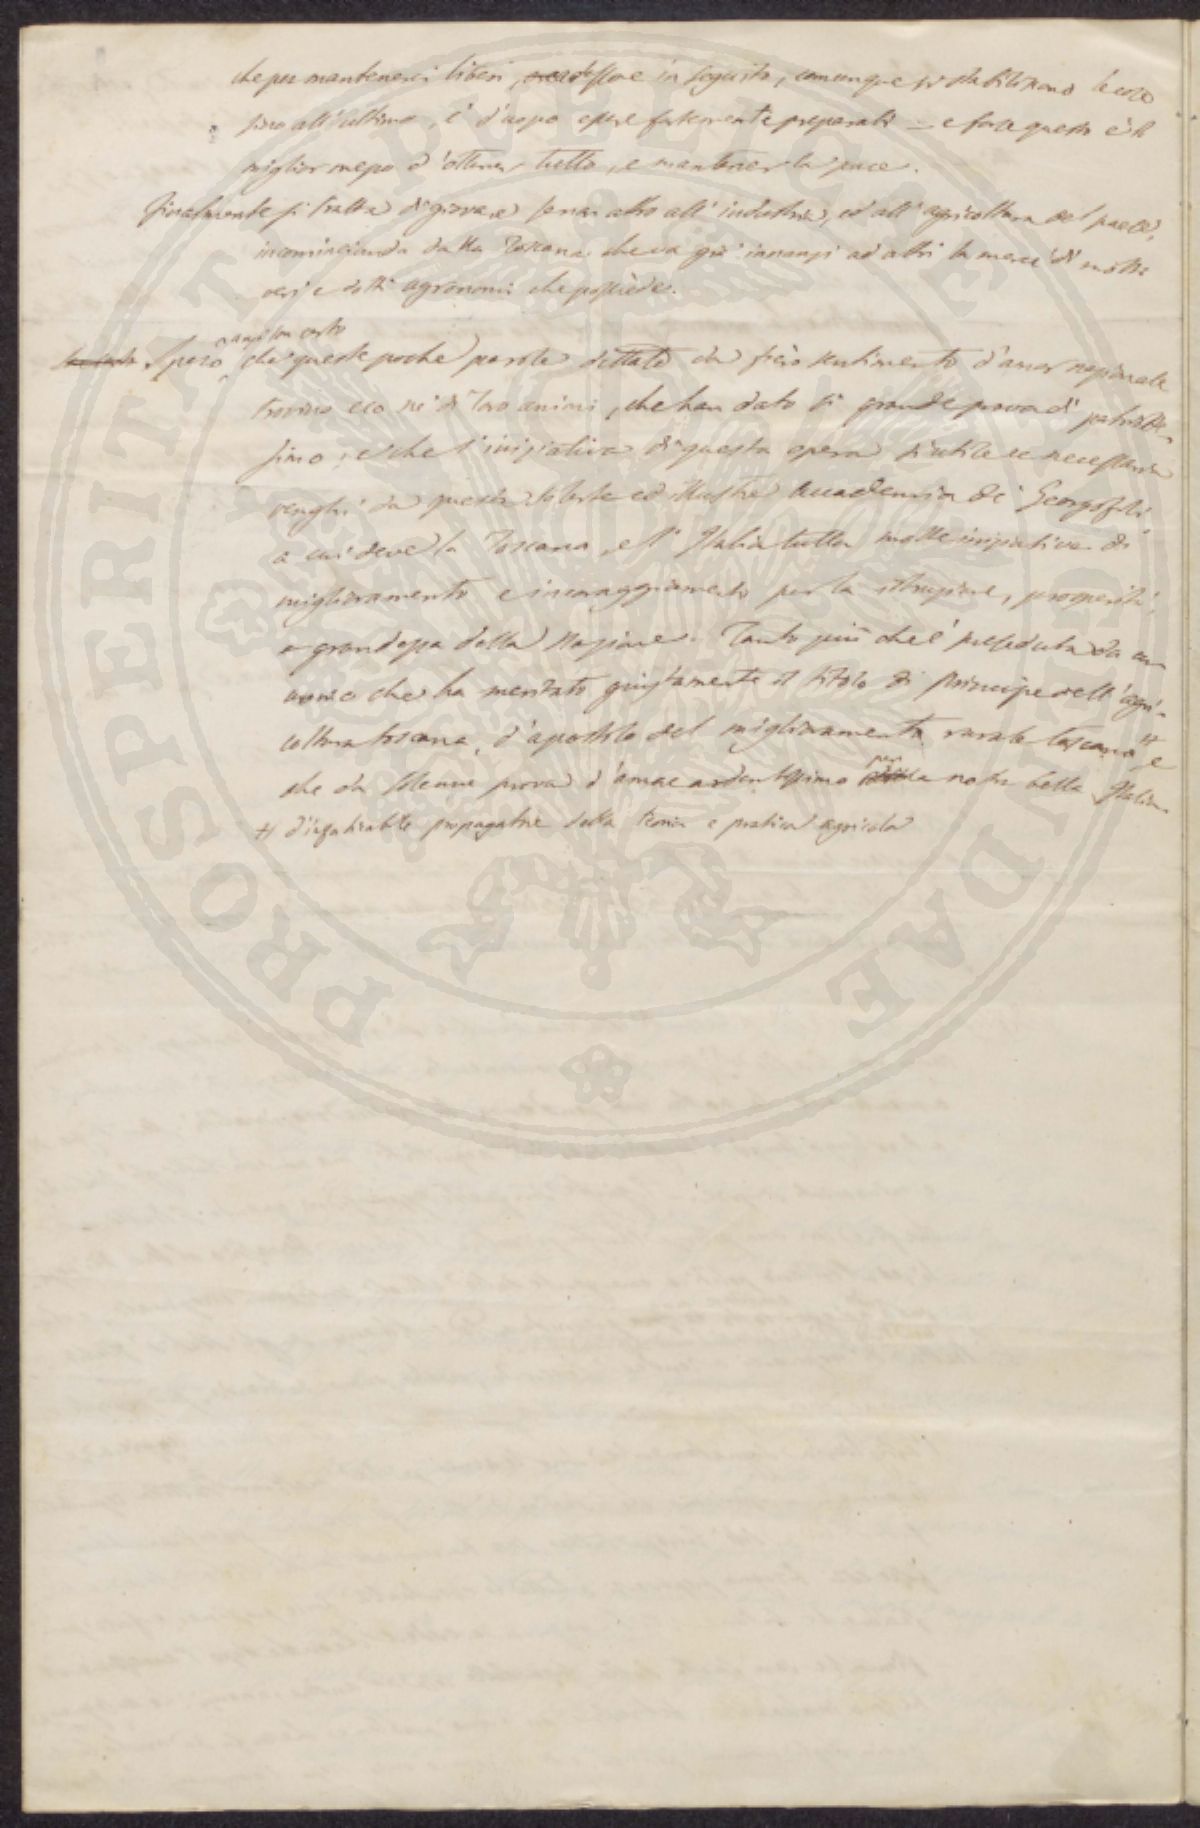 che per mantenerci liberi, ed essere in seguito, comunque si stabiliscano le cose
sino all'ultimo, è d'uopo essere fortemente preparati – e forse questo è il
miglior mezzo d'ottener tutto, e mantener la pace.
Finalmente si tratta di giovare senz'altro all'industria, ed all'agricoltura del paese,
incominciando dalla Toscana che va già innanzi ad altri la mercè di molti
veri e dotti agronomi che possiede.
anzi son certo
Spero che queste poche parole dettate da sentimento d'amor nazionale
trovino eco ne' di loro animi, che han dato sì grande prova di patriotti-
smo, e che l'iniziativa di questa opera sì utile e necessaria
venghi da questa solerte ed illustre Accademia de' Georgofili
a cui deve la Toscana, e l'Italia tutta molte iniziative di
miglioramento e incoraggiamento per la istruzione, prosperità,
e grandezza della Nazione. Tanto più che è preseduta da un
uomo che ha meritato giustamente il titolo di Principe dell'agri-
coltura toscana, d'apostolo del miglioramento rurale toscano # e
che da solenne prova d'amore ardentissimo per la nostra bella Italia.
# d'infaticabile propagatore della teoria e pratica agricola
PROSPERITATI PUBLICAE AUGENDAE